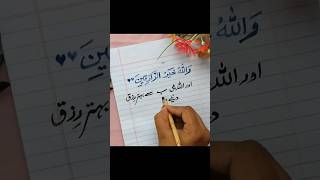 وَاللّٰهُ خَيْرُ الرَّازِقِينَ
اور اللہ ہی سب سے بہتر رزق